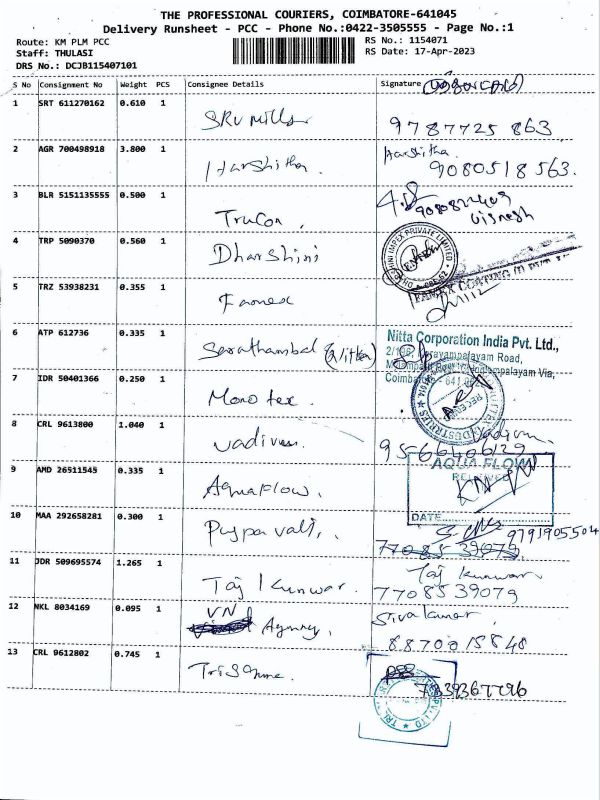 THE PROFESSIONAL COURIERS, COIMBATORE-641045
Delivery Runsheet - PCC - Phone No.:0422-3505555 - Page No.:1
Route: KM PLM PCC
Staff: THULASI
DRS No.: DCJB115407101
RS No.: 1154071
RS Date: 17-Apr-2023
S No Consignment No Weight PCS Consignee Details Signature
1 SRT 611270162 0.610 1 SRV Mills 9787725 863
2 AGR 700498918 3.800 1 Harshitha Harshitha
9080518 563.
3 BLR 5151135555 0.500 1 Trucon,
Vignesh
4 TRP 5090370 0.560 1 Dharshini
5 TRZ 53938231 0.355 1
6 ATP 612736 0.335 1 Nitta Corporation India Pvt. Ltd.,
7 IDR 50401366 0.250 1 Mono tex.
8 CRL 9613800 1.040 1 Vadivu. Vadivu.
9566406129
9 AMD 26511545 0.335 1 Aquaflow. AQUA FLOW
RECEIVED
DATE
10 MAA 292658281 0.300 1 9791905504
7708539079
11 JDR 509695574 1.265 1 Taj Kunwar. Taj Kunwar
7708539079
12 NKL 8034169 0.095 1 VN Agency. Siva Kumar.
8870015848
13 CRL 9612802 0.745 1